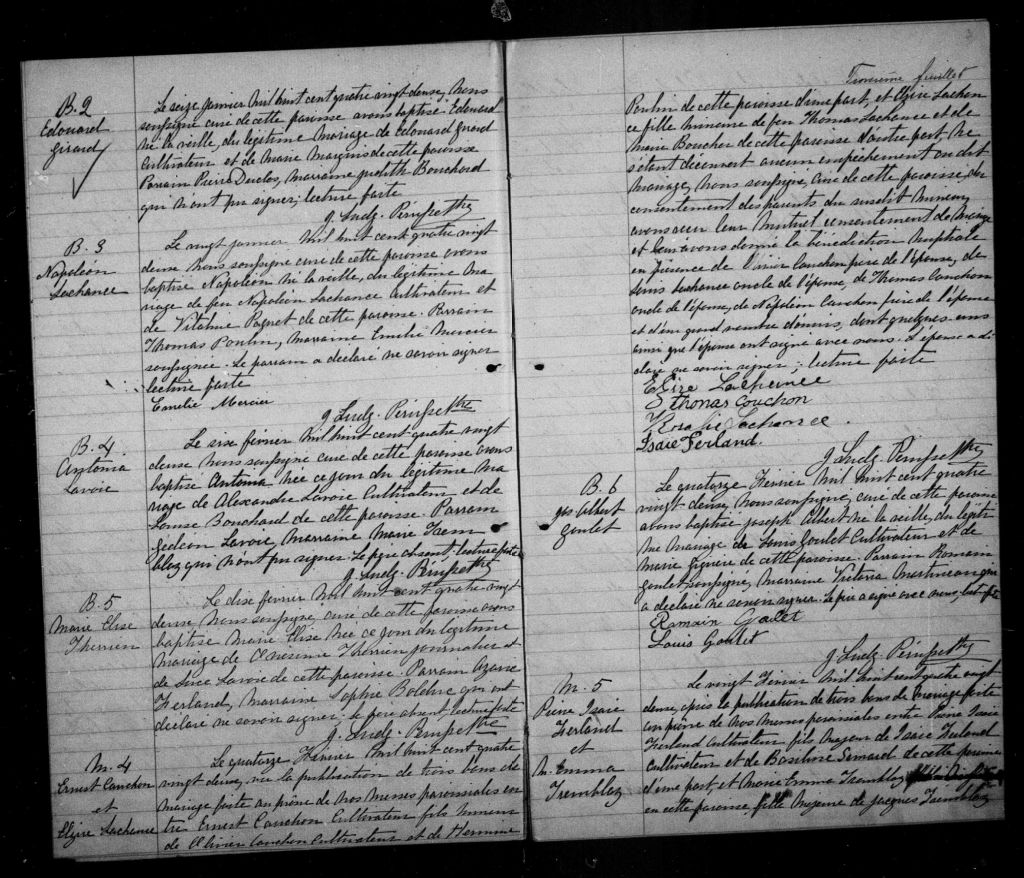 B. 2
Edouard
Girard
Le seize janvier mil huit cent quatre vingt douse, nous
soussigne curé de cette paroisse avons baptisé Edouard
né la veille, du légitime mariage de Edouard Girard
Cultivateur et de Marie de cette paroisse
Parrain Pierre Duclos, Marraine Judith Bouchard
qui n'ont pu signer; lecture faite
J. Ludg. Ptre
B. 3
Napoléon
Lachance
Le vingt janvier mil huit cent quatre vingt
douse nous soussigne curé de cette paroisse avons
baptise Napoléon né la veille, du légitime ma
riage de feu Napoléon Lachance Cultivateur et
de Vitaline Paquet de cette paroisse. Parrain
Thomas Poulin, Marraine Emélie Mercier
soussignee. Le parrain a declaré ne savoir signer
lecture faite
Emélie Mercier
J. Ludg. Ptre
B. 4.
Antonia
Lavoie
Le six février mil huit cent quatre vingt
douse nous soussigne curé de cette paroisse avons
baptise Antonia née ce jour du légitime ma
riage de Alexandre Lavoie Cultivateur et de
Louise Bouchard de cette paroisse. Parrain
Gédéon Lavoie, Marraine Marie Trem
blay qui n'ont pu signer. Le père absent, lecture faite
J. Ludg. Ptre
B. 5
Marie Elise
Therrien
Le dise fevrier mil huit cent quatre vingt
douse nous soussigne, curé de cette paroisse avons
baptise Marie Elise née ce jour du légitime
mariage de Onésime Therrien journalier et
de Luce Lavoie de cette paroisse. Parrain
Ferland, Marraine Sophie Bolduc qui ont
declaré ne savoir signer; le père absent, lecture faite
J. Ludg. Ptre
M. 4
Ernest Cauchon
et
Elzire Lachance
Le quatorze Février mil huit cent quatre
vingt douse, vu la publication de trois bans de
mariage faite au prône de nos Messes paroissiales en
tre Ernest Cauchon Cultivateur fils mineur
de Olivier Cauchon Cultivateur et de
Troisième feuillet
Poulin de cette paroisse d'une part, et Elzire Lachan
ce fille mineure de feu Thomas Lachance et de
Marie Boucher de cette paroisse d'autre part ne
s'étant découvert aucun empêchement au dit
mariage, nous soussigne, curé de cette paroisse, du
consentement des parents du susdit mineur
avons reçu leur mutuel consentement de mariage
et leur avons donné la bénédiction nuptiale
en présence de Cauchon père de l'époux, de
Louis Lachance oncle de l'épouse, de Thomas Cauchon
oncle de l'époux, de Napoléon Cauchon frère de l'époux
et d'un grand nombre d'amis, dont quelques uns
ainsi que l'épouse ont signé avec nous. L'époux a dé
claré ne savoir signer; lecture faite
Elzire Lachance
Thomas Couchon
Rosalie Lachance.
Isaie Ferland.
J. Ludg. Ptre
B. 6
Jos Albert
Goulet
Le quatorze Février mil huit cent quatre
vingt douse, nous soussigne, curé de cette paroisse
avons baptisé Joseph Albert né la veille, du légiti
me mariage de Louis Goulet Cultivateur et de
Marie de cette paroisse. Parrain Romain
Goulet soussigne, Marraine Victoria Martineau qui
a declaré ne savoir signer. Le père a signé avec nous, lect. faite
Romain Goulet
Louis Goulet
J. Ludg. Ptre
M. 5
Pierre Isaie
Ferland
et
M. Emma
Tremblay
Le vingt Février mil huit cent quatre vingt
douse, après la publication de trois bans de mariage faite
au prône de nos Messes paroissiales entre Pierre Isaie
Ferland Cultivateur fils majeur de Isaie Ferland
Cultivateur et de Basilisse Simard de cette paroisse
d'une part, et Marie Emma Tremblay
en cette paroisse, fille majeure de Jacques Tremblay